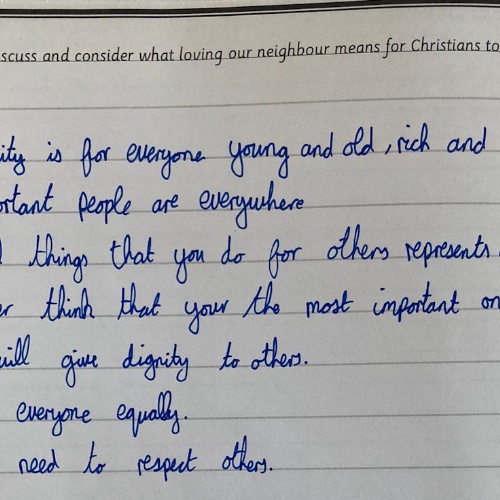 scuss and consider what loving our neighbour means for Christians to
ity is for everyone young and old, rich and
ortant people are everywhere
things that you do for others represents
er think that your the most important on
will give dignity to others.
everyone equally.
need to respect others.